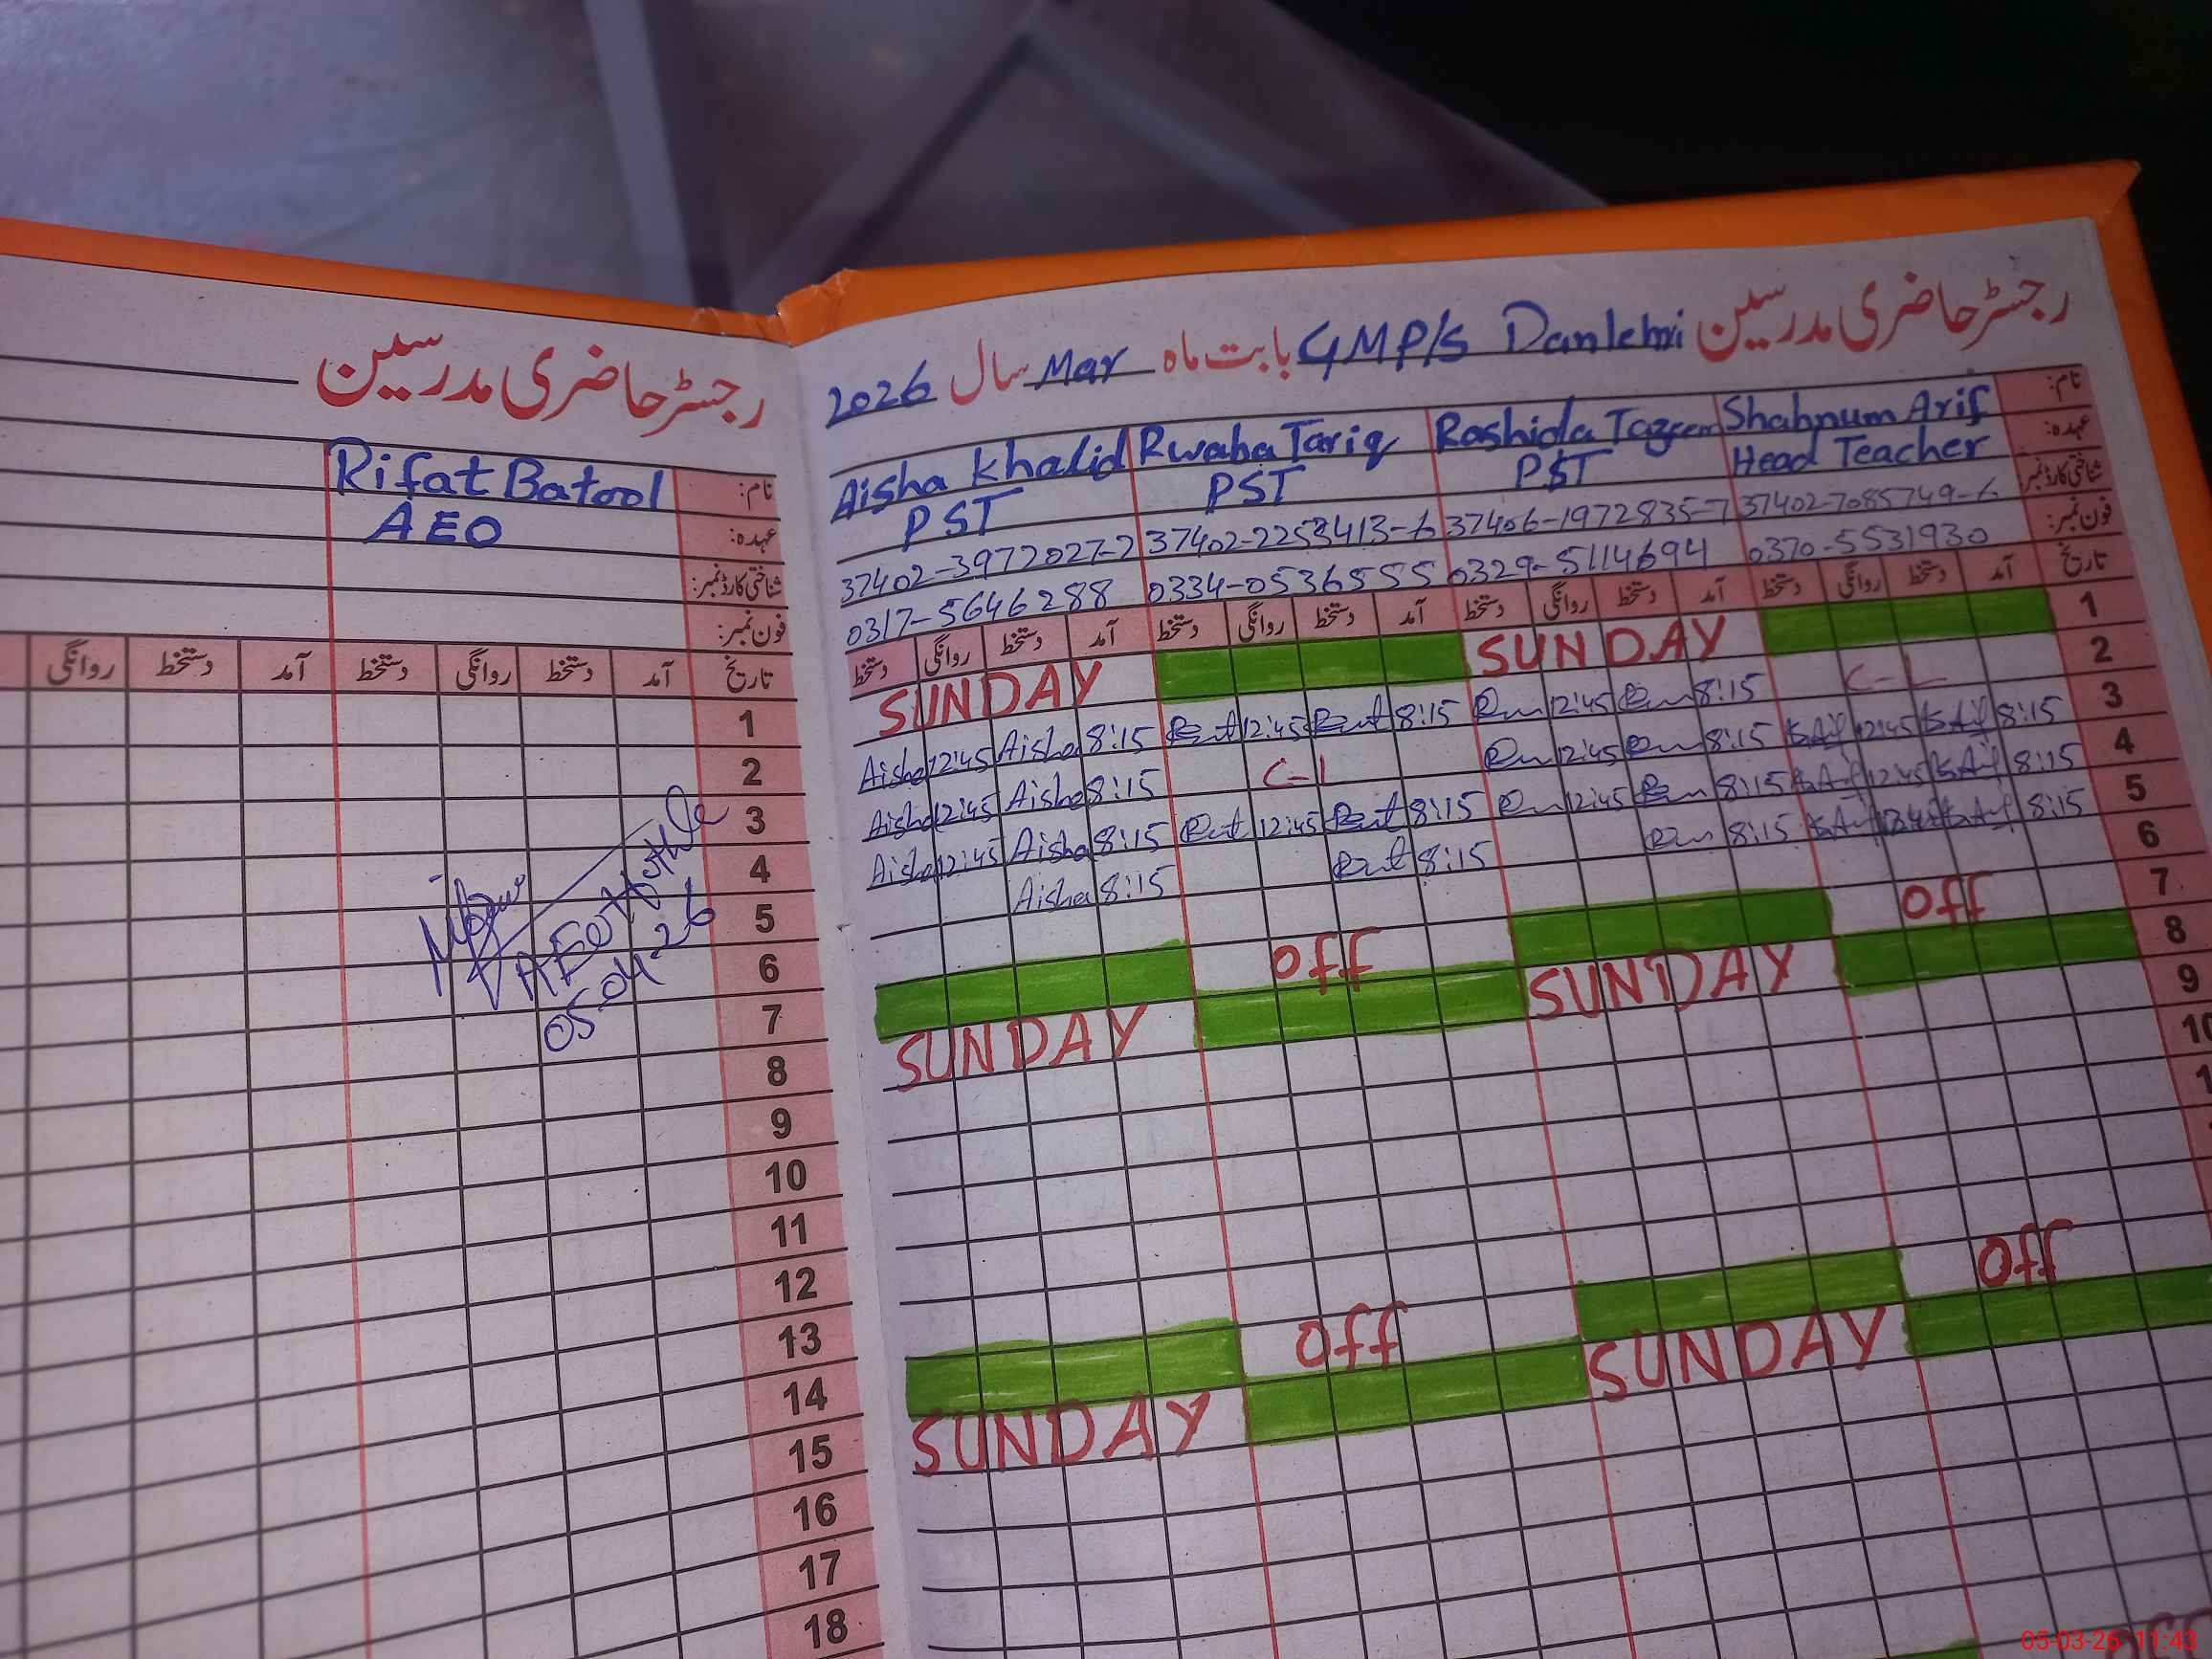 رجسٹر حاضری مدرسین
نام: Rifat Batool
عہدہ: AEO
شناختی کارڈ نمبر:
فون نمبر:
تاریخ آمد دستخط روانگی دستخط آمد دستخط روانگی
1
2
3
4
5
6
7
8
9
10
11
12
13
14
15
16
17
18
05-04-26
رجسٹر حاضری مدرسین GMP/S Danlehri بابت ماہ Mar سال 2026
نام: Shabnum Arif Rashida Tazeem Rwaha Tariq Aisha Khalid
عہدہ: Head Teacher PST PST PST
شناختی کارڈ نمبر: 37402-7085749-6 37406-1972835-7 37402-2253413-6 37402-3972027-2
فون نمبر: 0370-5531930 0329-5114694 0334-0536555 0317-5646288
تاریخ آمد دستخط روانگی دستخط آمد دستخط روانگی دستخط آمد دستخط روانگی دستخط آمد دستخط روانگی دستخط
1 SUNDAY SUNDAY
2 C-L 8:15 12:45 8:15 12:45 8:15 Aisha 12:45 Aisha
3 8:15 12:45 8:15 12:45 C-L 8:15 Aisha 12:45 Aisha
4 8:15 12:45 8:15 12:45 8:15 12:45 8:15 Aisha 12:45 Aisha
5 8:15 8:15 8:15 8:15 Aisha
6
7 Off Off
8 SUNDAY SUNDAY
9
10
Off Off
SUNDAY SUNDAY
05-03-26 11:43